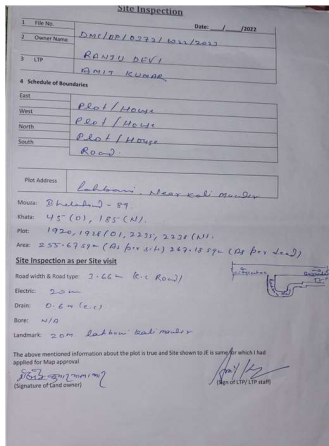 Site Inspection
Date: ___/___/2022
1 File No. DMC/BP/0373/1022/2023
2 Owner Name RANJU DEVI
3 LTP AMIT KUMAR
4 Schedule of Boundaries
East Plot / House
West Plot / House
North Plot / House
South Road.
Plot Address Lahbani, Near Kali Mandir
Mouza: Bhelatand - 89.
Khata: 45 (O), 185 (N).
Plot: 1920, 1928 (O), 2231, 2230 (N).
Area: 255.67 Sqm (As per site) 267.18 Sqm (As per deed)
Site Inspection as per Site visit
Road width & Road type: 3.66m (C.C Road)
Electric: 20m
Drain: 0.6m (C.C)
Bore: N/A
Landmark: 20m Lahbani Kali mandir
The above mentioned information about the plot is true and Site shown to JE is same for which I had
applied for Map approval
(Signature of Land owner)
(Sign of LTP/ LTP staff)